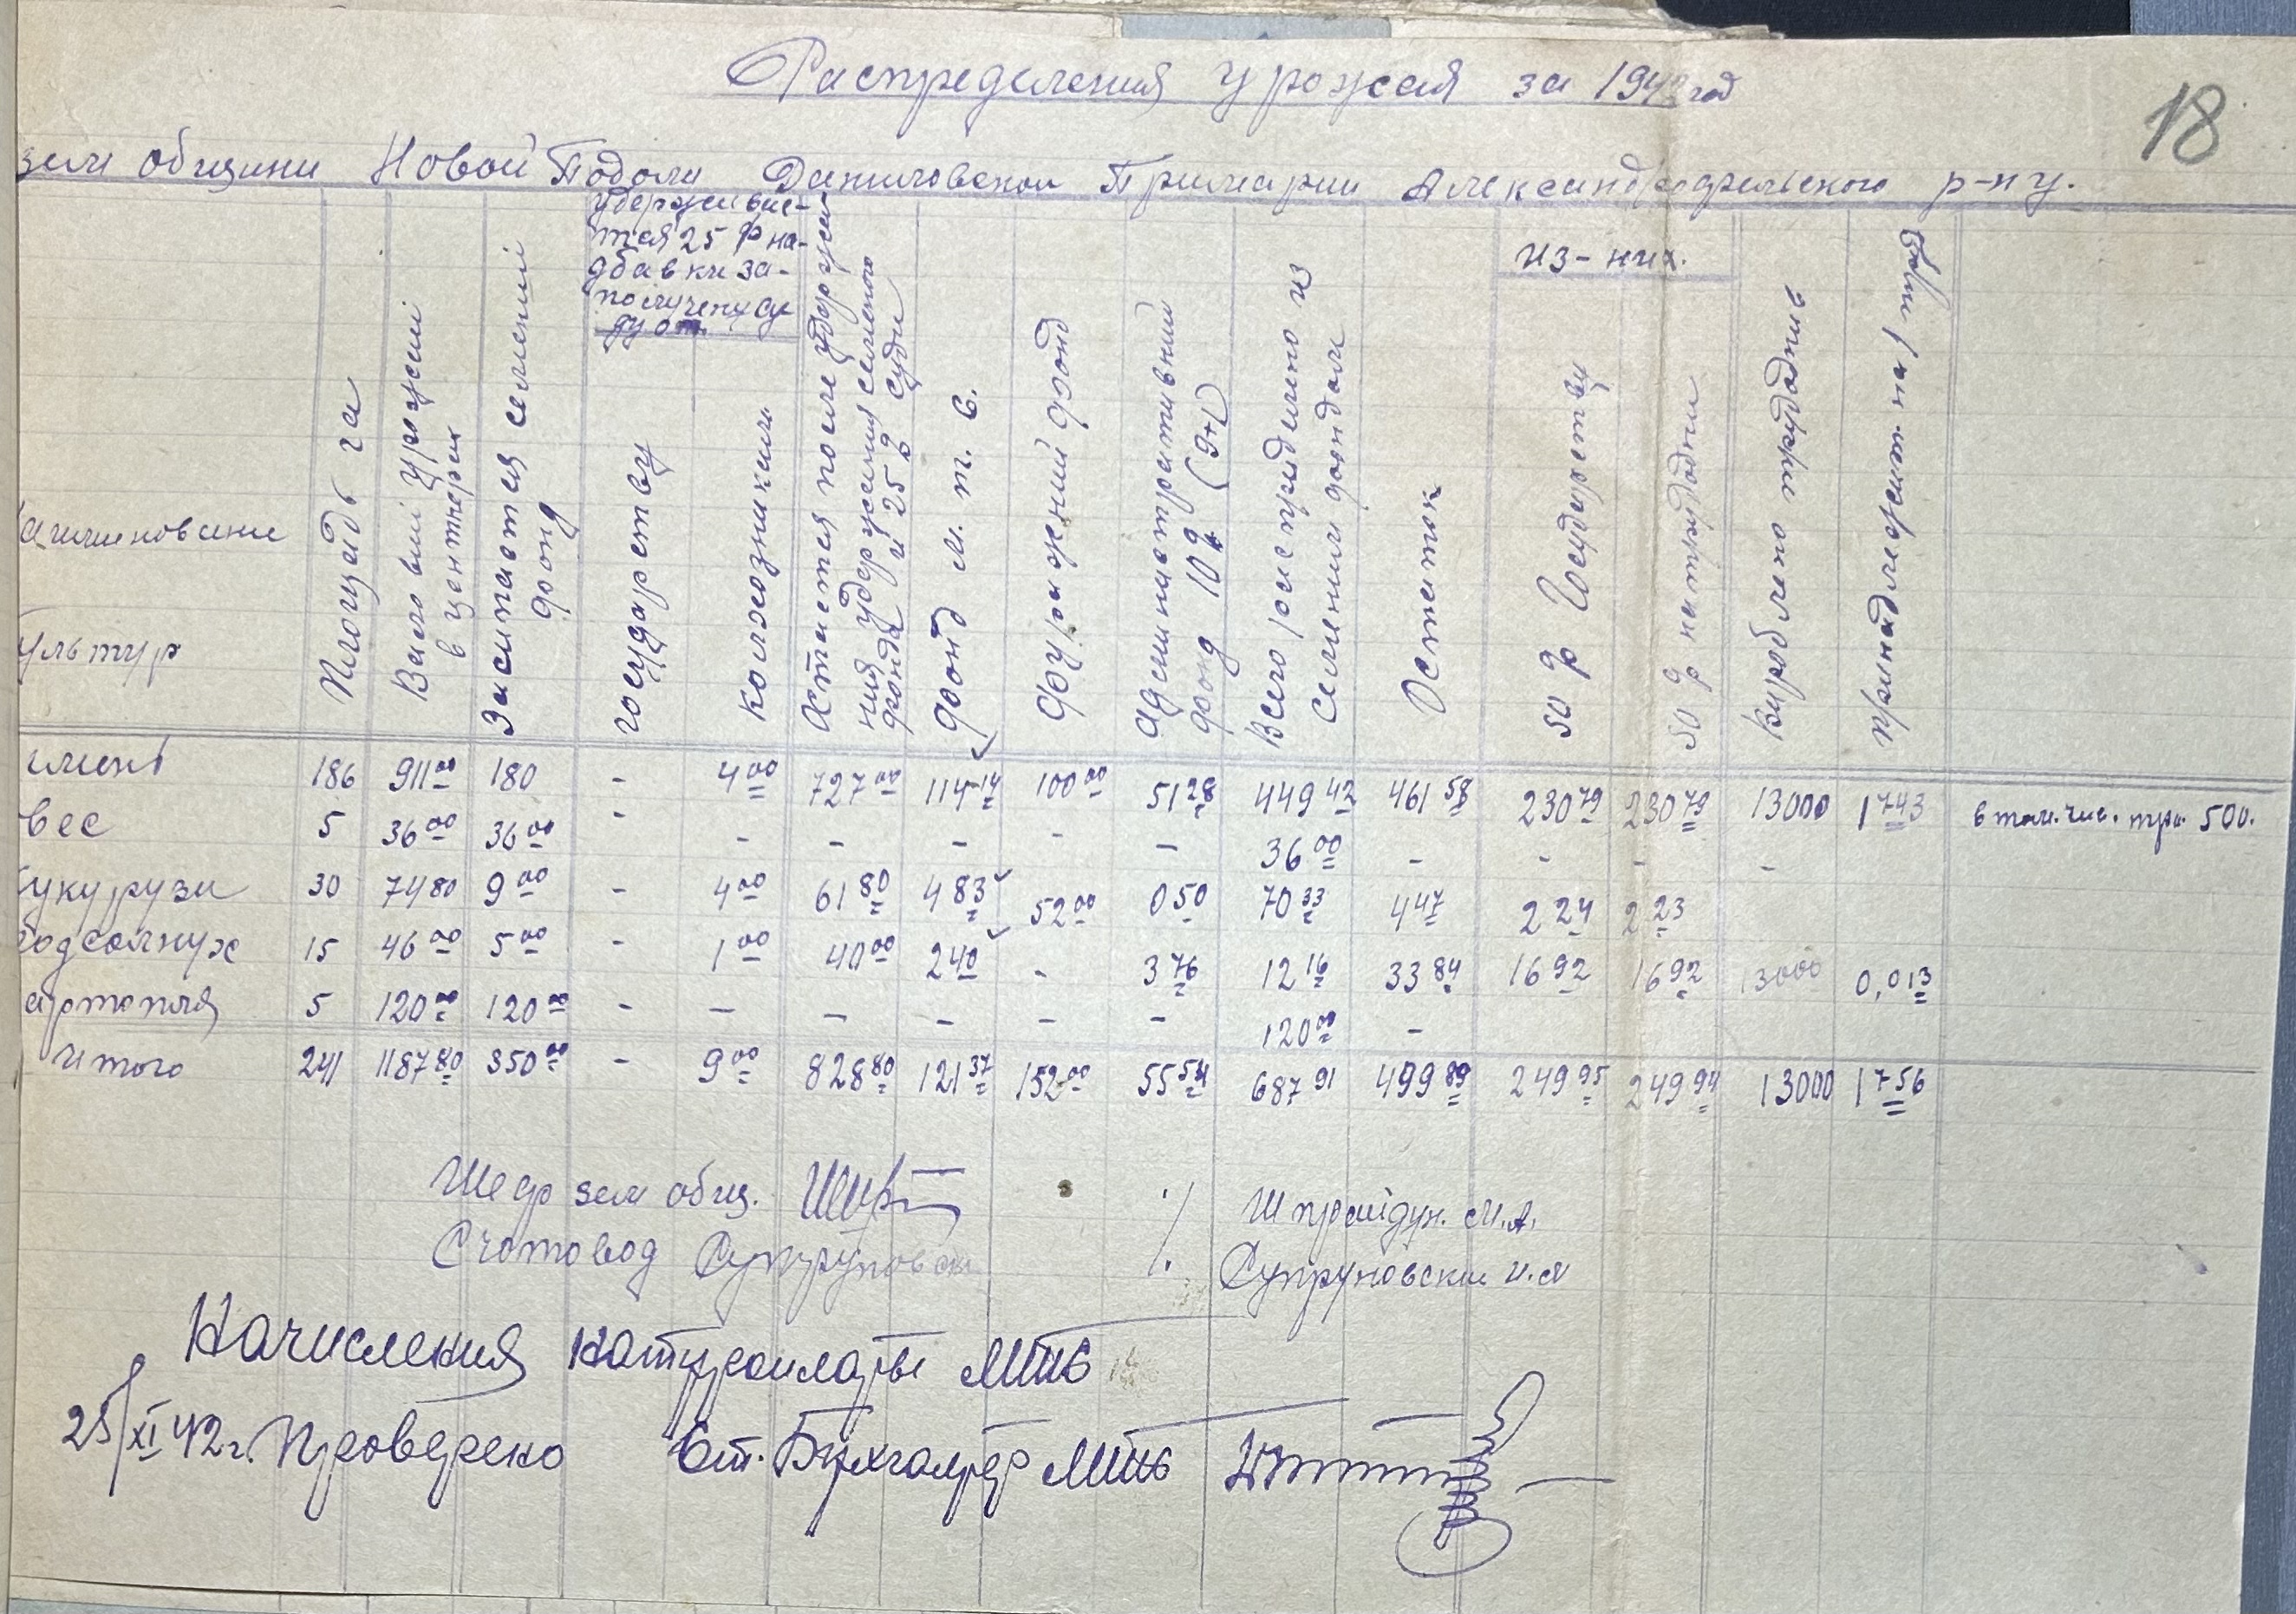 Распределения урожая за 1942 год
18
зем общини Новой Подоли Даниловской Примарии Александрфельского р-ну.
аименование
ультур
Площадь га
Всего вий урожай
в центнерах
Засипается семений
фонд
Удержевае-
тся 25 % на-
дбавки за-
полученую су
ду от.
государству
колхозникам
Остается после удержа
ния удержания семеного
фонда и 25 % суди
фонд м. т. с.
Фуражений фонд
Административний
фонд 10 % (9+1)
Всего распридилено из
Семеним фондом
Остаток
из-них.
50 % Государству
50 % на трудодни
Вироблено трудоднив
принадлежит. на 1 труд
чмень 186 911 00 180 - 4 00 727 00 114 14 100 00 51 28 449 42 461 58 230 79 230 79 13000 1 743 в том. чис. тра. 500.
вес 5 36 00 36 00 - - - - - - 36 00 - - - -
укурузи 30 74 80 9 00 - 4 00 61 80 4 83 52 00 0 50 70 33 4 47 2 24 2 23
одсолнух 15 46 00 5 00 - 1 00 40 00 2 40 - 3 76 12 16 33 84 16 92 16 92 13000 0,013
артопля 5 120 00 120 00 - - - - - - 120 00 -
Итого 241 1187 80 350 00 - 9 00 828 80 121 37 152 00 55 54 687 91 499 89 249 95 249 94 13000 1 756
Шеф зем общ.
Счотовод Супруновски
Супруновски И. Я
Начисления натуроплаты МТС
25/XI 42 г. Проверено Ст. Бухгалтер МТС